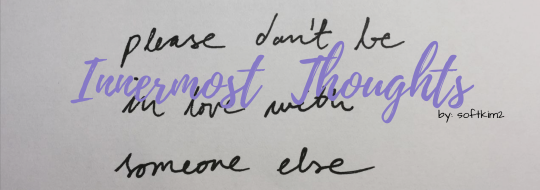 please don't be
Innermost Thoughts
in love with
by: softkim2
someone else